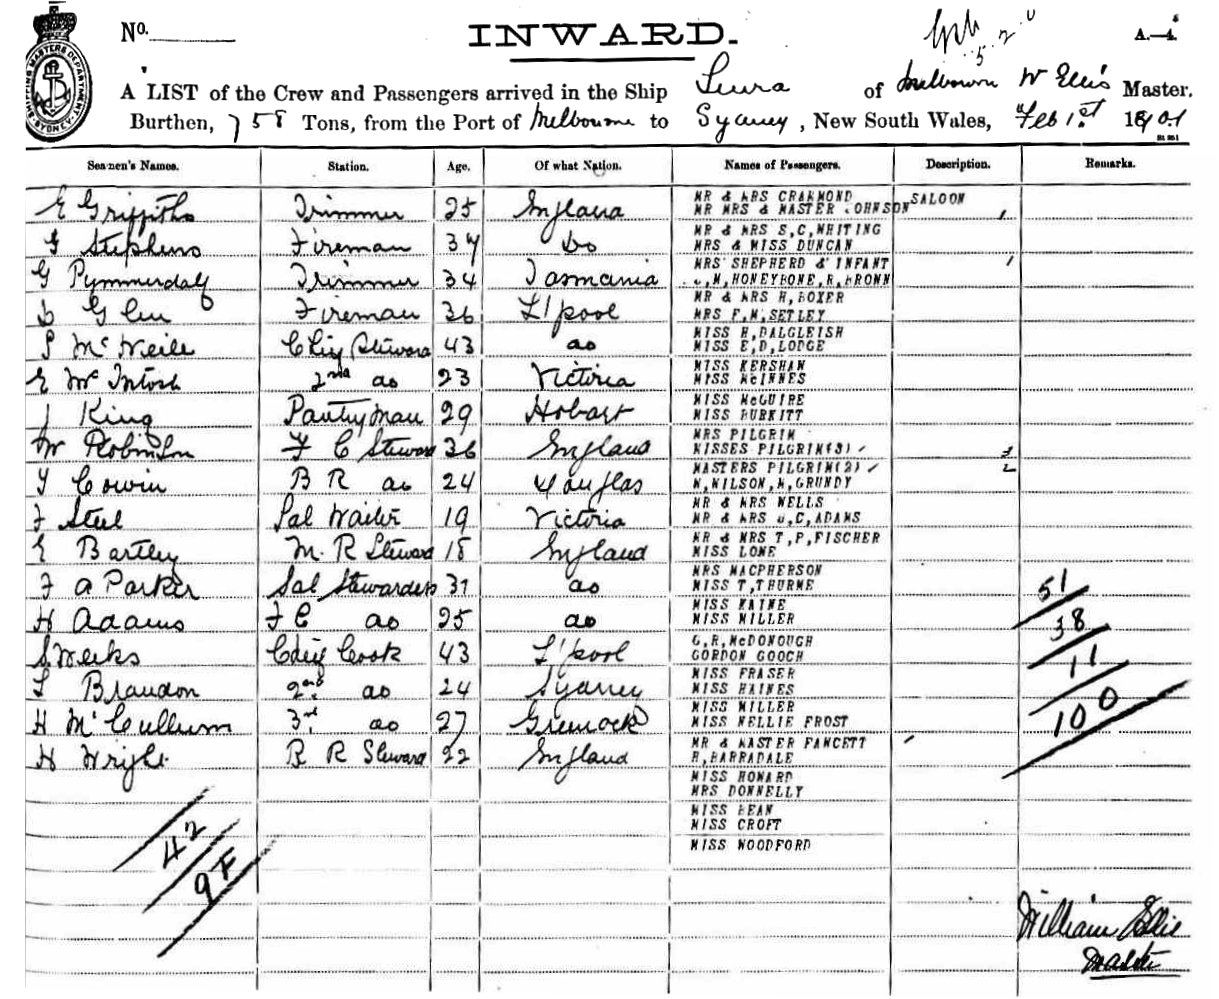 No.
INWARD.
A.—4.
A LIST of the Crew and Passengers arrived in the Ship Leura of Melbourn W Ellis Master.
Burthen, 758 Tons, from the Port of Melbourne to Sydney, New South Wales, Feb 1st 1901
Seamen's Names. Station. Age. Of what Nation. Names of Passengers. Description. Remarks.
E Griffiths Trimmer 25 England MR & MRS CRAKMOND SALOON
MR MRS & MASTER JOHNSON
G Stephens Fireman 34 do MR & MRS S,C,WHITING
MRS & MISS DUNCAN
G Trimmer 34 Tasmania MRS SHEPHERD & INFANT
M,HONEYBONE,R,BROWN
D Glen Fireman 36 L'pool MR & MRS H,BOXER
MRS F,M,SETLEY
P McNeile Chief Steward 43 do MISS H,DALGLEISH
MISS E,D,LODGE
E McIntosh 2nd do 23 Victoria MISS KERSHAW
MISS McINNES
J King Pantryman 29 Hobart MISS McGUIRE
MISS BURKITT
W Robinson F C Steward 36 England MRS PILGRIM
MISSES PILGRIM(3)
T Cowin B R do 24 Douglas MASTERS PILGRIM(2)
W,WILSON,W,GRUNDY
F Steel Sal Waiter 19 Victoria MR & MRS WELLS
MR & MRS J,C,ADAMS
E Bartley M.R Steward 18 England MR & MRS T,P,FISCHER
MISS LOWE
F A Parker Sal Stewardess 37 do MRS MACPHERSON
MISS T,THURME
51
H Adams F C do 25 do MISS KAINE
MISS MILLER
38
S Weeks Chief Cook 43 L'pool G,R,McDONOUGH
GORDON GOOCH
11
L Brandon 2nd do 24 Sydney MISS FRASER
MISS HAINES
100
H McCullum 3rd do 27 Greenock MISS MILLER
MISS NELLIE FROST
H Wright B R Steward 22 England MR & MASTER FAWCETT
H,BARRADALE
MISS HOWARD
MRS DONNELLY
MISS BEAN
MISS CROFT
MISS WOODFORD
42
9F
William Ellis
Master